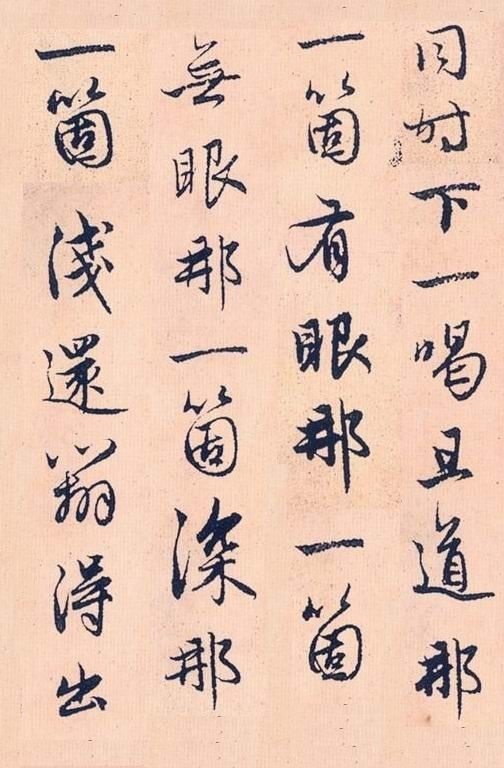 同時下一喝且道那
一箇有眼那一箇
無眼那一箇深那
一箇淺還辨得出